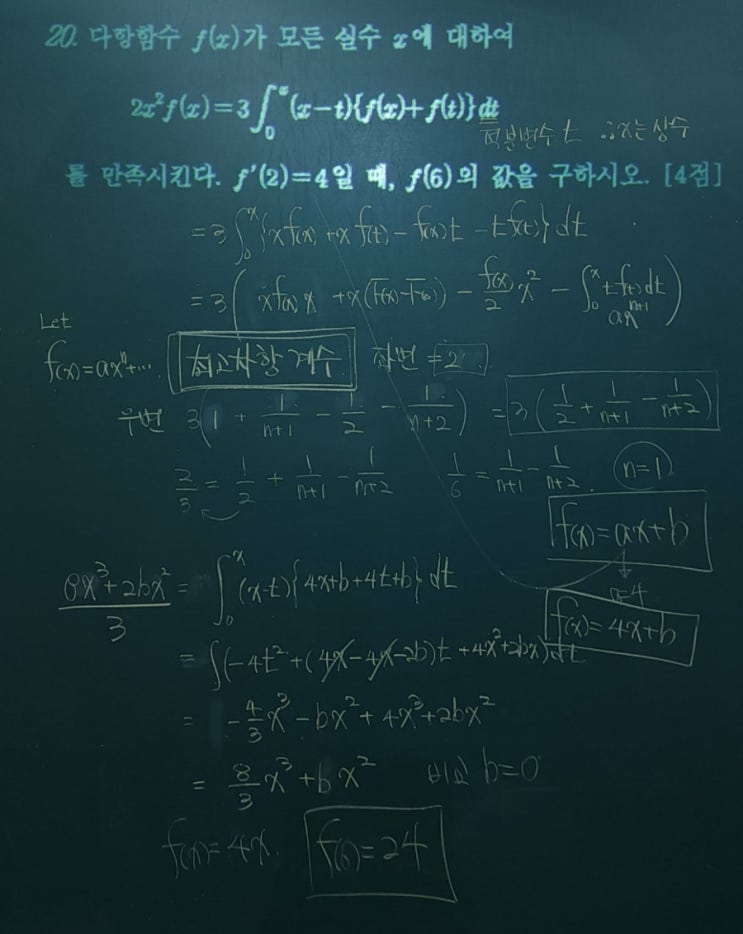 20. 다항함수 f(x)가 모든 실수 x에 대하여
2x²f(x)=3∫₀ˣ(x-t){f(x)+f(t)}dt
적분변수 t ∴x는 상수
를 만족시킨다. f'(2)=4일 때, f(6)의 값을 구하시오. [4점]
=3∫₀ˣ{xf(x)+xf(t)-f(x)t-tf(t)}dt
=3(xf(x)x+x(F(x)-F(0))-f(x)/2 x²-∫₀ˣtf(t)dt)
axⁿ⁺¹
Let
f(x)=axⁿ+... 최고차항 계수 좌변=2
우변 3(1+1/(n+1)-1/2-1/(n+2)) =3(1/2+1/(n+1)-1/(n+2))
2/3=1/2+1/(n+1)-1/(n+2) 1/6=1/(n+1)-1/(n+2). n=1
f(x)=ax+b
a=4
f(x)=4x+b
(8x³+2bx²)/3=∫₀ˣ(x-t){4x+b+4t+b}dt
=∫(-4t²+(4x-4x-2b)t+4x²+2bx)dt
=-4/3x³-bx²+4x³+2bx²
=8/3x³+bx² 비교 b=0
f(x)=4x. f(6)=24